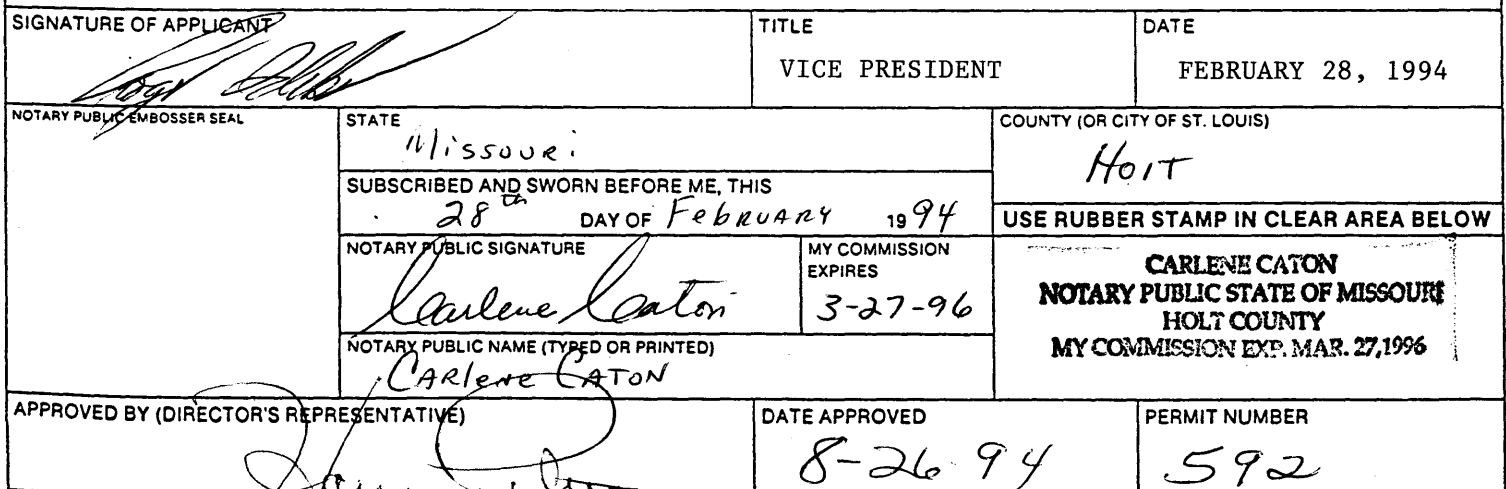 SIGNATURE OF APPLICANT
TITLE
DATE
VICE PRESIDENT
FEBRUARY 28, 1994
NOTARY PUBLIC EMBOSSER SEAL
STATE
COUNTY (OR CITY OF ST. LOUIS)
Missouri
Holt
SUBSCRIBED AND SWORN BEFORE ME, THIS
28th DAY OF February 1994
USE RUBBER STAMP IN CLEAR AREA BELOW
NOTARY PUBLIC SIGNATURE
MY COMMISSION
EXPIRES
Carlene Caton
3-27-96
CARLENE CATON
NOTARY PUBLIC STATE OF MISSOURI
HOLT COUNTY
MY COMMISSION EXP. MAR. 27,1996
NOTARY PUBLIC NAME (TYPED OR PRINTED)
CARlene CATON
APPROVED BY (DIRECTOR'S REPRESENTATIVE)
DATE APPROVED
PERMIT NUMBER
8-26 94
592